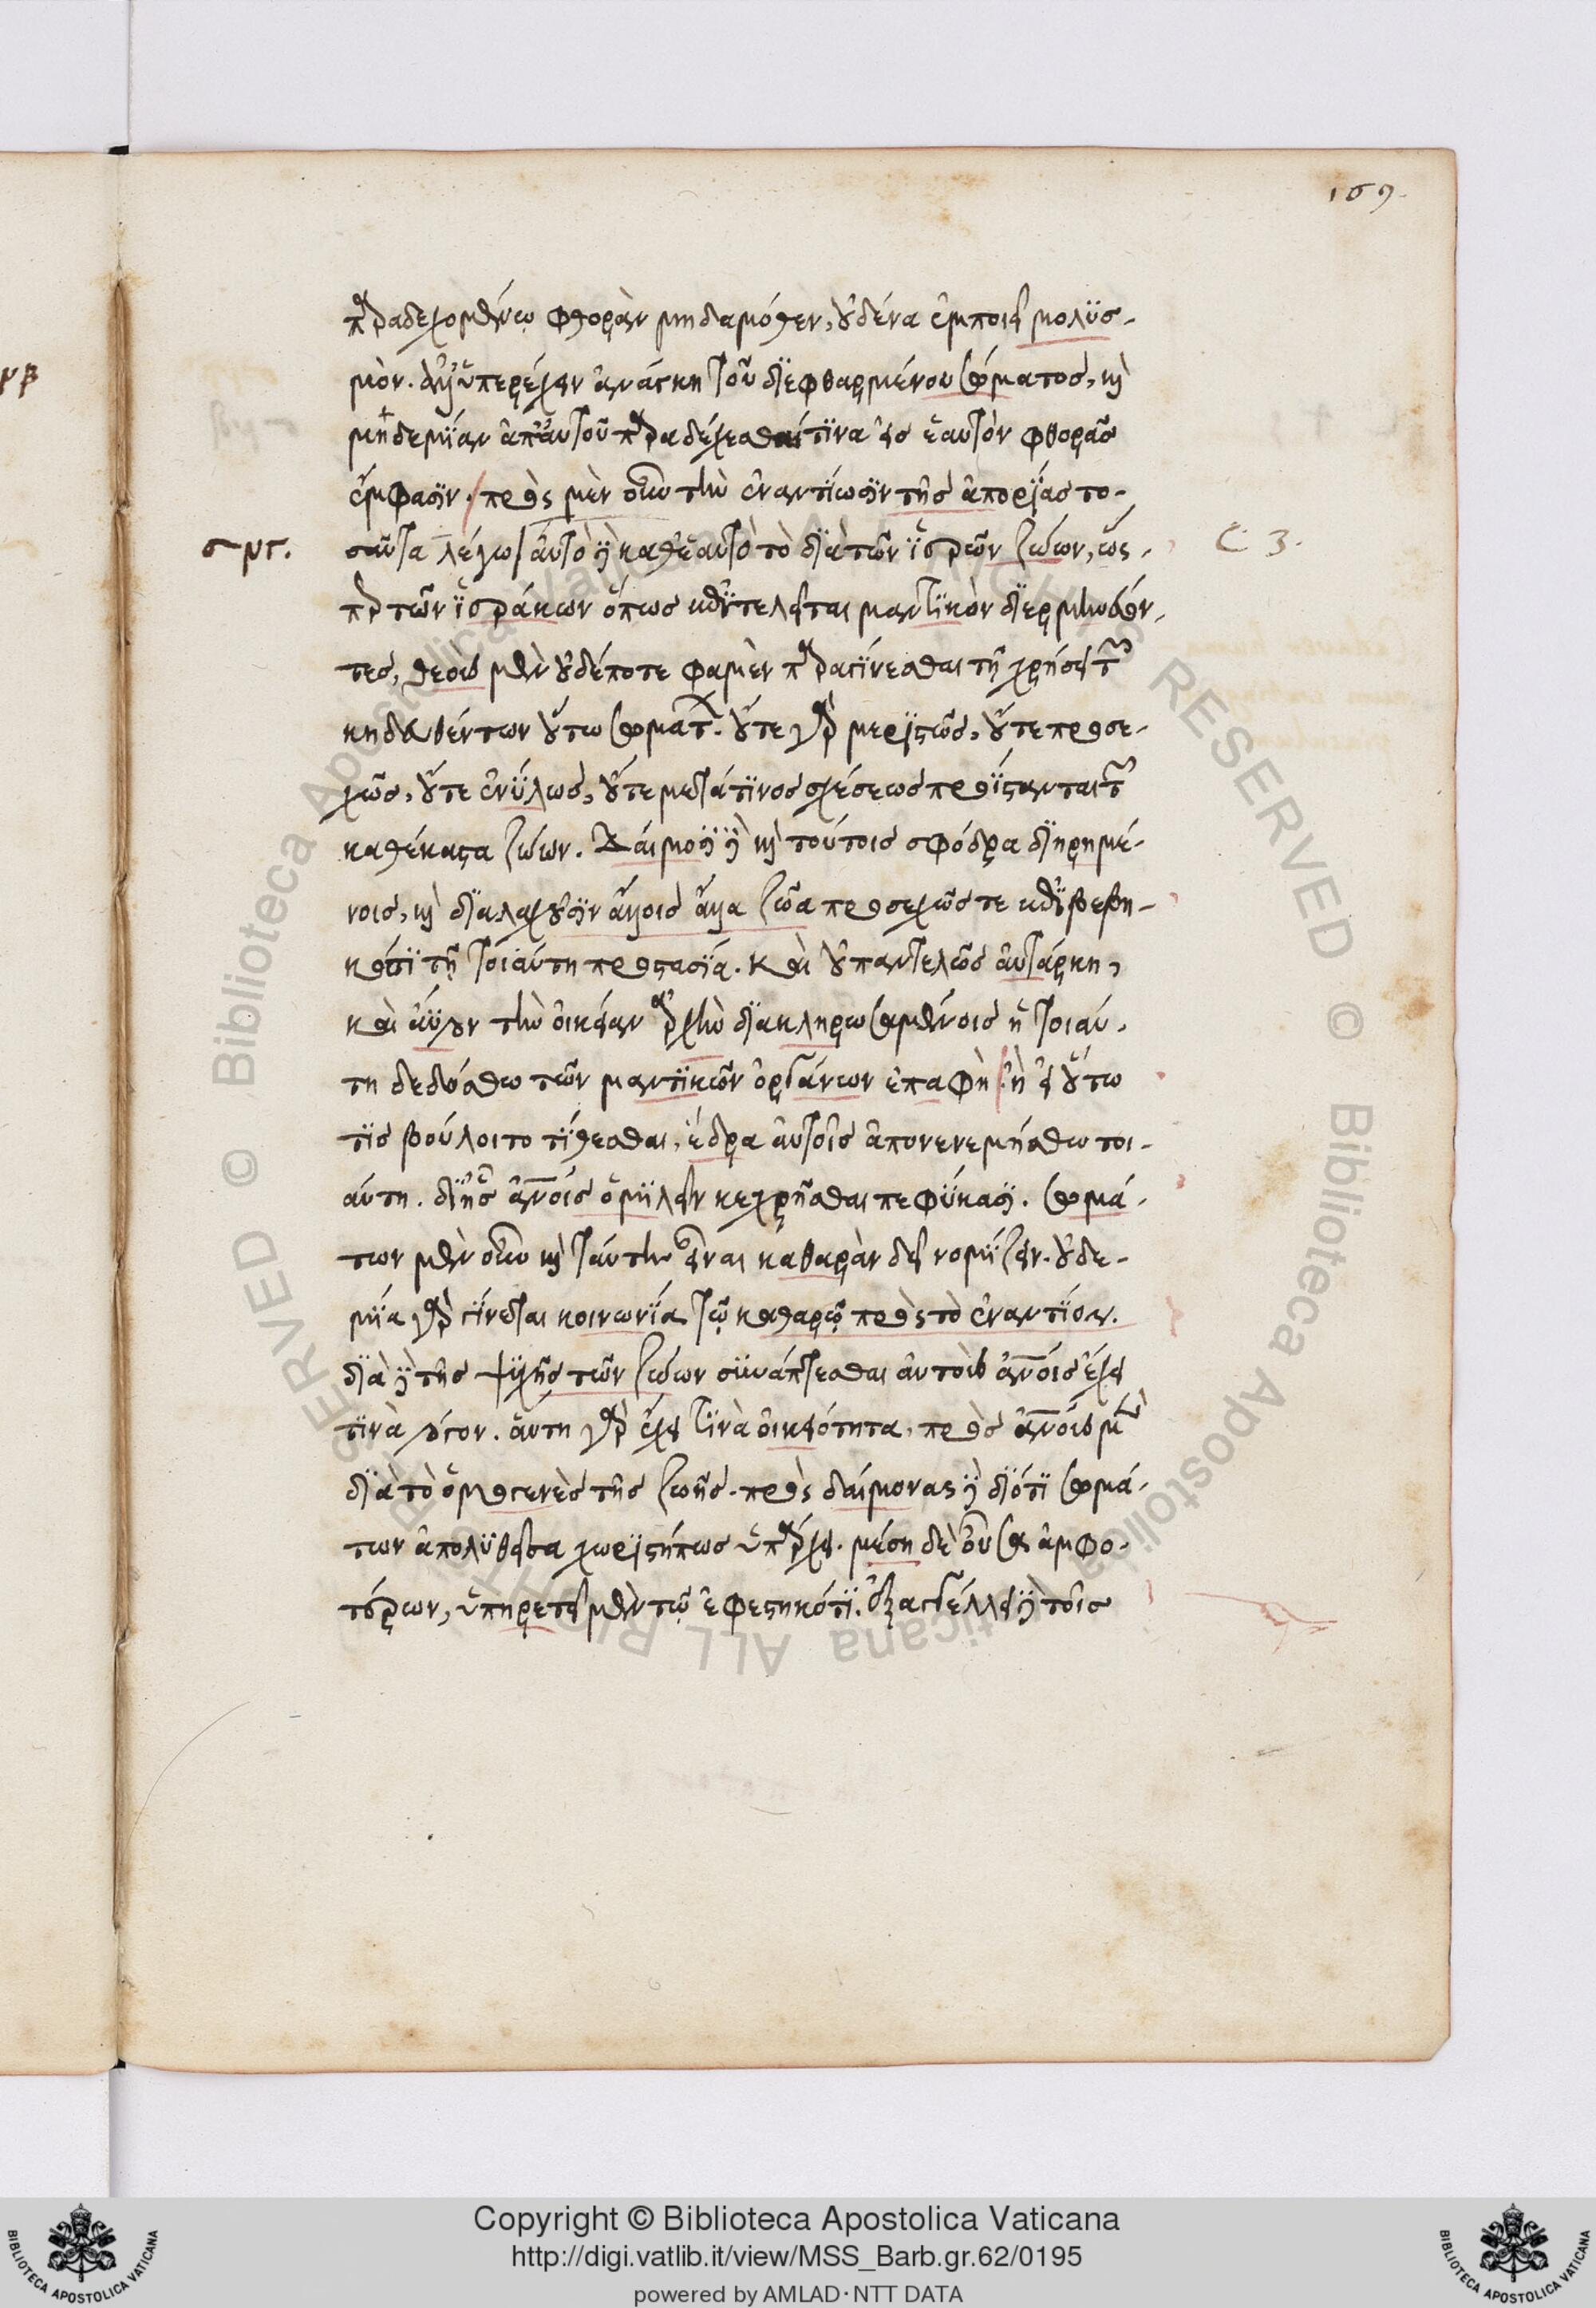 169.
παραδεχομένῳ φθορὰν μηδαμόθεν, οὐδένα ἐμποιεῖ μολϋσ-
μόν. ἀλλ' ὑπερέχειν ἀνάγκη τοῦ διεφθαρμένου σώματος, καὶ
μηδεμΐαν ἀπ' αὐτοῦ παραδέχεσθαί τινα εἰς ἑαυτὸν φθορᾶς
ἔμφασιν. πρὸς μὲν οὖν τὴν ἐναντίωσιν τῆς ἀπορίας το-
σμγ.
σαῦτα λέγω αὐτὸ δὲ καθ' ἑαυτὸ τὸ διὰ τῶν ἱερῶν ζώων, ὥσ-
C 3.
περ τῶν ἱεράκων ὅπως ἐπιτελεῖται μαντικὸν διερμηνεύον-
τες, θεοὺς μὲν οὐδέποτε φαμὲν παραγίνεσθαι τῇ χρήσει τῶν
κηδευθέντων οὕτω σωμάτων. οὔτε γὰρ μεριστῶς, οὔτε προσε-
χῶς, οὔτε ἐνύλως, οὔτε μετά τινος σχέσεως προΐστανται τῶν
καθέκαστα ζώων. δαίμοσι δὲ καὶ τούτοις σφόδρα διῃρημέ-
νοις, καὶ διαλαχοῦσιν ἄλλοις ἄλλα ζῶα προσεχῶς τε ἐπιβεβη-
κόσι τῇ τοιαύτῃ προστασίᾳ. καὶ οὐ παντελῶς αὐτάρκη,
καὶ ἄϋλον τὴν οἰκείαν ἀρχὴν διακληρωσαμένοις ἡ τοιαύ-
τη δεδόσθω τῶν μαντικῶν ὀργάνων ἐπαφή. ἢ εἰ οὕτω
τις βούλοιτο τίθεσθαι, ἕδρα αὐτοῖς ἀπονενεμήσθω τοι-
αύτη. δι' ἧς ἀνοις ὁμιλεῖν κεχρῆσθαι πεφύκασι. σωμά-
των μὲν οὖν καὶ ταύτην εἶναι καθαρὰν δεῖ νομίζειν. οὐδε-
μία γὰρ γίνεται κοινωνία τῷ καθαρῷ πρὸς τὸ ἐναντίον.
διὰ δὲ τῆς ψυχῆς τῶν ζώων συνάπτεσθαι αὐτοὺς ἀνοις ἔχει
τινὰ λόγον. αὕτη γὰρ ἔχει τινὰ οἰκειότητα, πρὸς ἀνους μὲν
διὰ τὸ ὁμογενὲς τῆς ζωῆς. πρὸς δαίμονας δὲ διότι σωμά-
των ἀπολυθεῖσα χωριστή πως ὑπάρχει. μέση δὲ οὖσα ἀμφο-
τέρων, ὑπηρετεῖ μὲν τῷ ἐφεστηκότι. ἐξαγγέλλει δὲ τοῖς
Copyright © Biblioteca Apostolica Vaticana
http://digi.vatlib.it/view/MSS_Barb.gr.62/0195
powered by AMLAD·NTT DATA